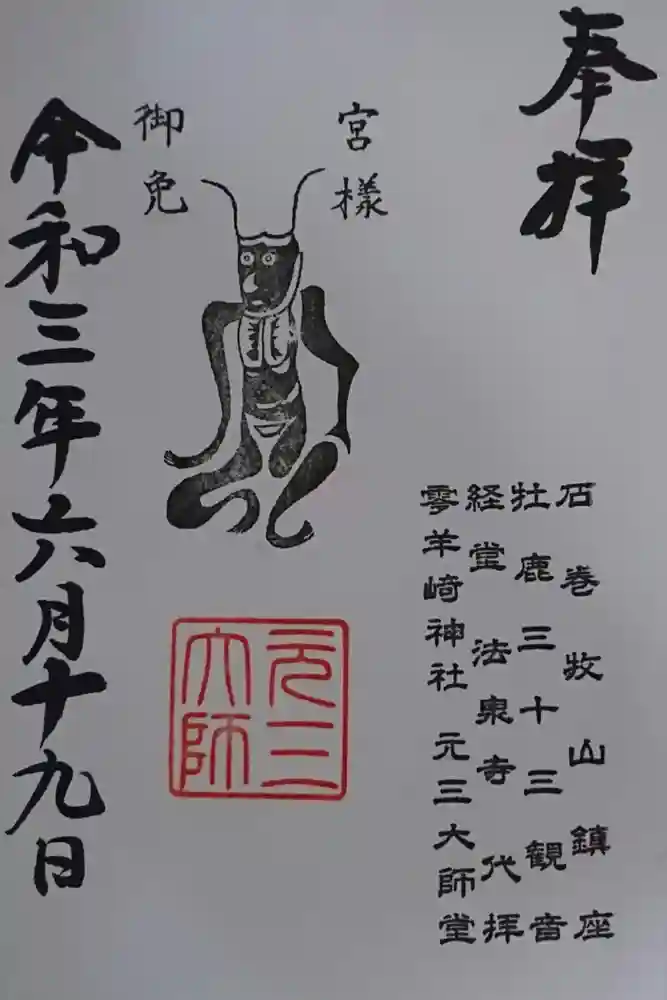 奉拝
宮様
御免
石巻牧山鎮座
牡鹿三十三観音
経堂法泉寺代拝
零羊崎神社元三大師堂
元三
大師
令和三年六月十九日